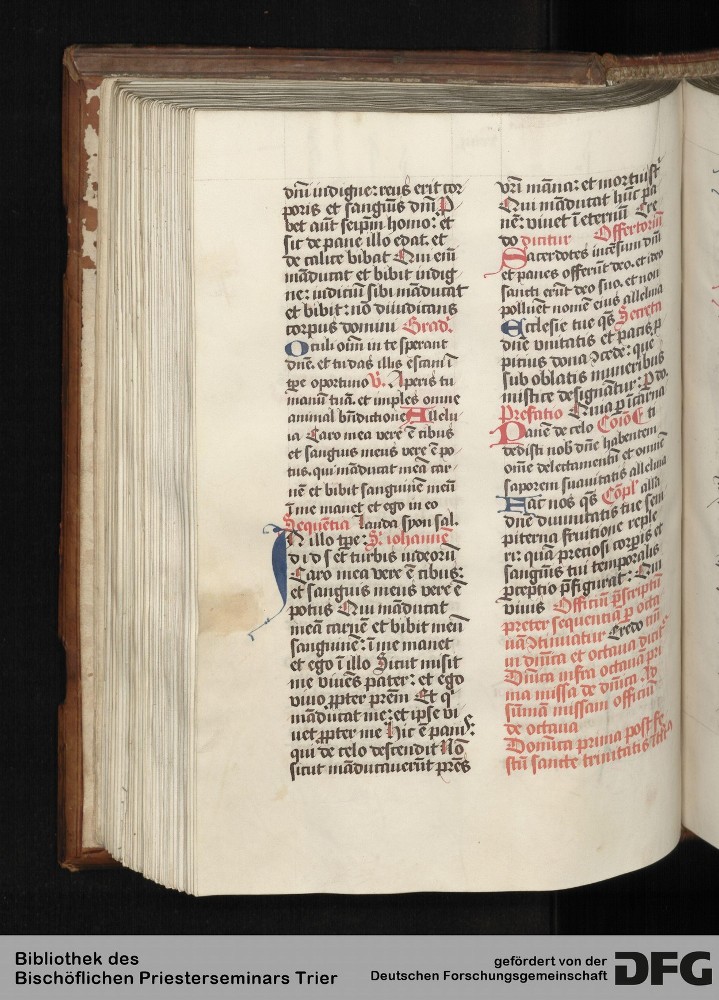 dn̄i indigne: reus erit cor
poris et sanguis dn̄i P
bet aūt seip̄m homo: et
sic de pane illo edat. et
de calice bibat Qui em̄
māducat et bibit indig
ne: iudiciū sibi māducat
et bibit: nō diiudicans
corpus domini Grad̓.
Oculi om̄i in te sperant
dn̄e. et tu das illis escam ī
tp̄e oportuno V. Aperis tu
manū tuā. et imples omne
animal bn̄dictione Allelu
ia Caro mea vere ē cibus
et sanguis meus vere ē po
tus. qui māducat meā car
nē et bibit sanguinē meū
ī me manet et ego in eo
Sequētia Lauda syon sal.
IN illo tp̄e: S. iohannē
d i d s et turbis iudeorū
Caro mea vere ē cibus:
et sanguis meus vere ē
potus Qui māducat
meā carnē et bibit meū
sanguinē: ī me manet
et ego ī illo Sicut misit
me vivēs pater: et ego
vivo ꝓpter prēm Et q̓
māducat me: et ipse vi
uet ꝓpter me Hic ē panis:
qui de celo descendit Nō
sicut māducauerūt pr̄es
vr̄i māna: et mortui st̄
Qui māducat hūc pa
nē: viuet ī eternū Cre
do dicitur Offertoriū
Sacerdotes incēsum dn̄i
et panes offerūt deo. et ideo
sancti erūt deo suo. et non
polluēt nomē eius alleluia
Ecclesie tue qs̄ Secreta
dn̄e vnitatis et pacis ꝓ
pitius dona ↄcede: que
sub oblatis muneribus
mistice designātur: P do.
Prefatio Quia ꝑ īcarna
Panē de celo Cōio E ti
dedisti nob̄ dn̄e habentem
om̄e delectamentū et omnē
saporem suauitatis alleluia
Fac nos qs̄ Cōpl̓ alla
dn̄e diuinitatis tue sem
piterna fruitione reple
ri: quā preciosi corporis et
sanguis tui temporalis
ꝑceptio p̄figurat: Qui
viuis Officiū p̄scriptū
preter sequentiā ꝑ octa
uā ↄtinuatur Credo
in diuīca et octaua dicit̓
Dn̄ica infra octauā pri
ma missa de dn̄ica. Ad
sūmam missam officiū
de octaua
Domīca prima post fe
stū sancte trinitatis
Bibliothek des
Bischöflichen Priesterseminars Trier
gefördert von der
Deutschen Forschungsgemeinschaft
DFG